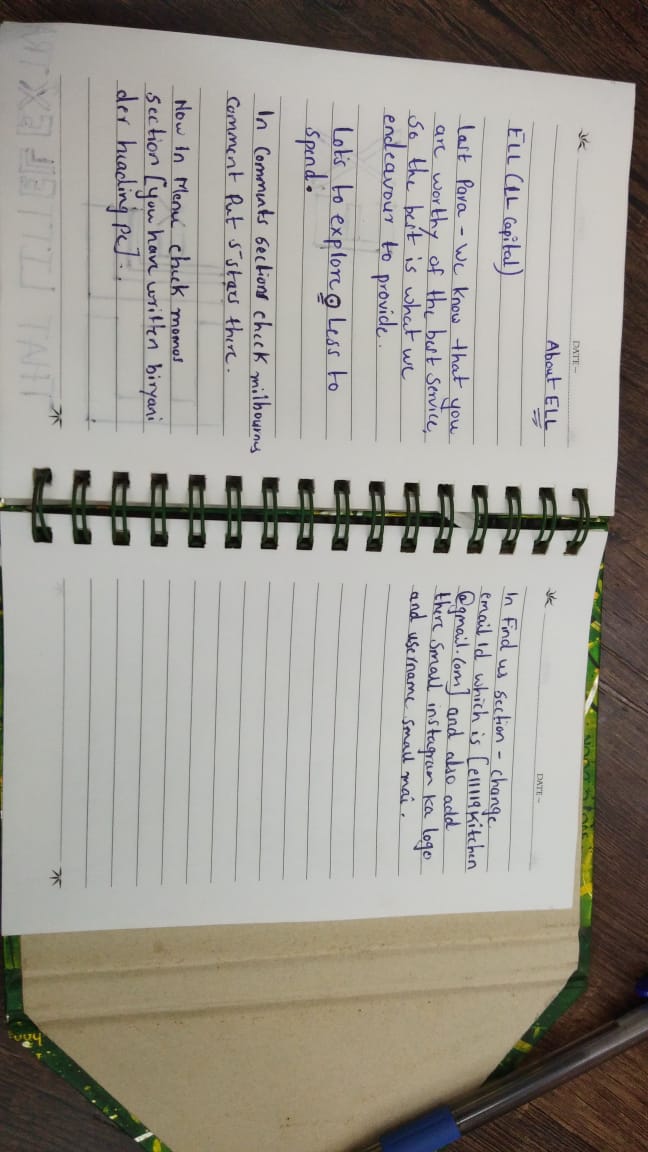 DATE~
About ELL
ELL (LL Capital)
last Para - We Know that you
are worthy of the best service,
so the best is what we
endeavour to provide.
Lot's to explore. Less to
spend.
In Comments sections check milbourns
Comment Put 5-stars there.
Now In Menu check momos
section [you have written biryani
der heading pe]..
THAT LITTEL EXTRA
DATE~
In Find us section - change
email Id which is [ell119Kitchen
@gmail.com] and also add
there small instagram ka logo
and username small mai.